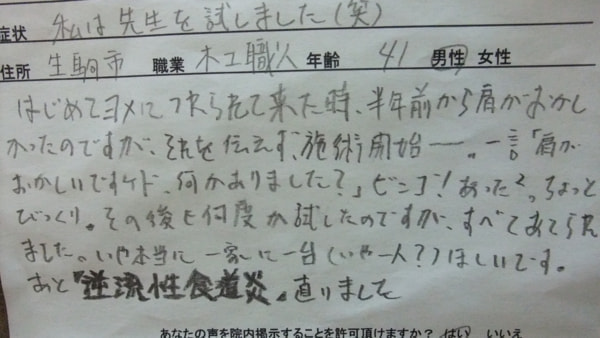 症状 私は先生を試しました(笑)
住所 生駒市 職業 木工職人 年齢 41 男性 女性
はじめてヨメにつれられて来た時、半年前から肩がおかし
かったのですが、それを伝えず、施術開始――。一言「肩が
おかしいですケド、何かありました?」ビンゴ!あった²、ちょっと
びっくり。その後も何度か試したのですが、すべてあてられ
ました。いや本当に一家に一台(いや一人?)ほしいです。
あと『逆流性食道炎』直りました
あなたの声を院内掲示することを許可頂けますか? はい いいえ